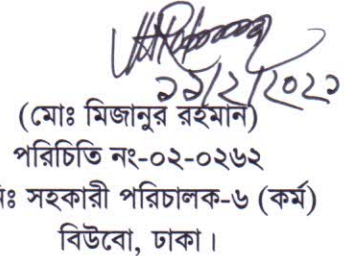 (মোঃ মিজানুর রহমান)
পরিচিতি নং-০২-০২৬২
নিঃ সহকারী পরিচালক-৬ (কর্ম)
বিউবো, ঢাকা।